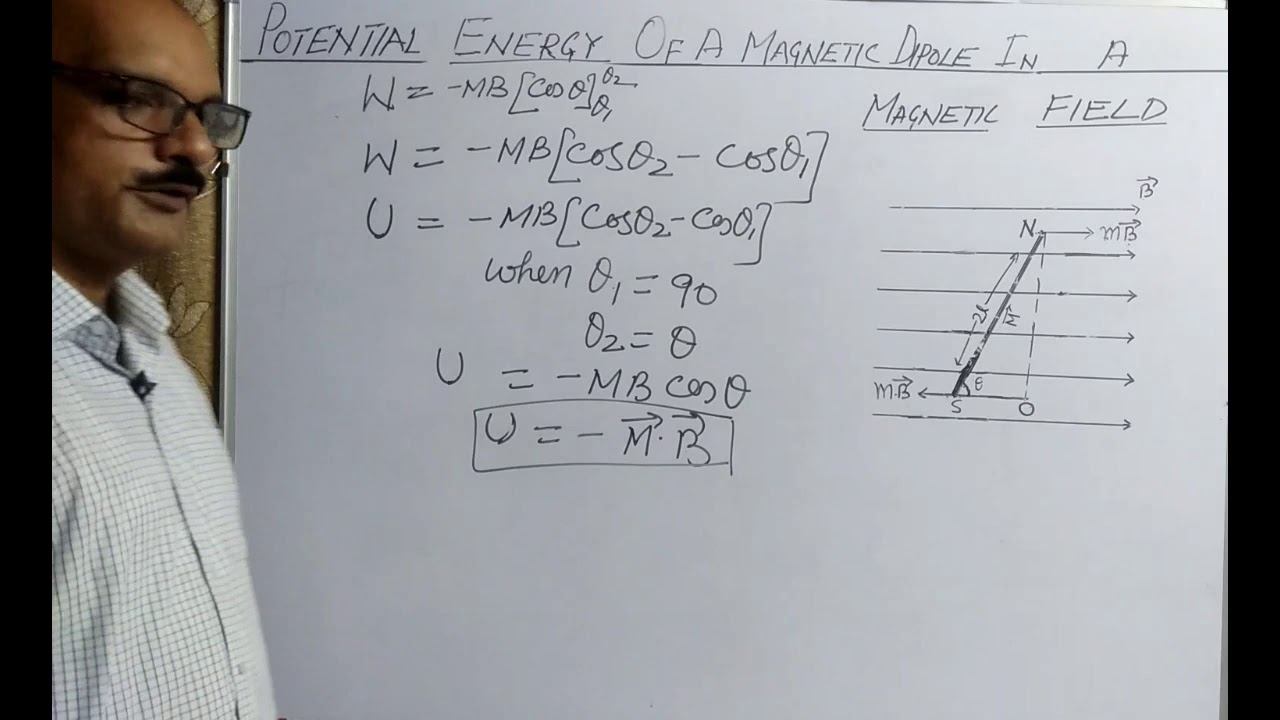 POTENTIAL ENERGY OF A MAGNETIC DIPOLE IN A
MAGNETIC FIELD
W = -MB[cosθ]θ₁^θ₂
W = -MB[cosθ₂ - cosθ₁]
U = -MB[cosθ₂ - cosθ₁]
when θ₁ = 90
θ₂ = θ
U = -MB cosθ
U = - M⃗·B⃗
B⃗
N
mB⃗
2l
M⃗
mB⃗
θ
S
O